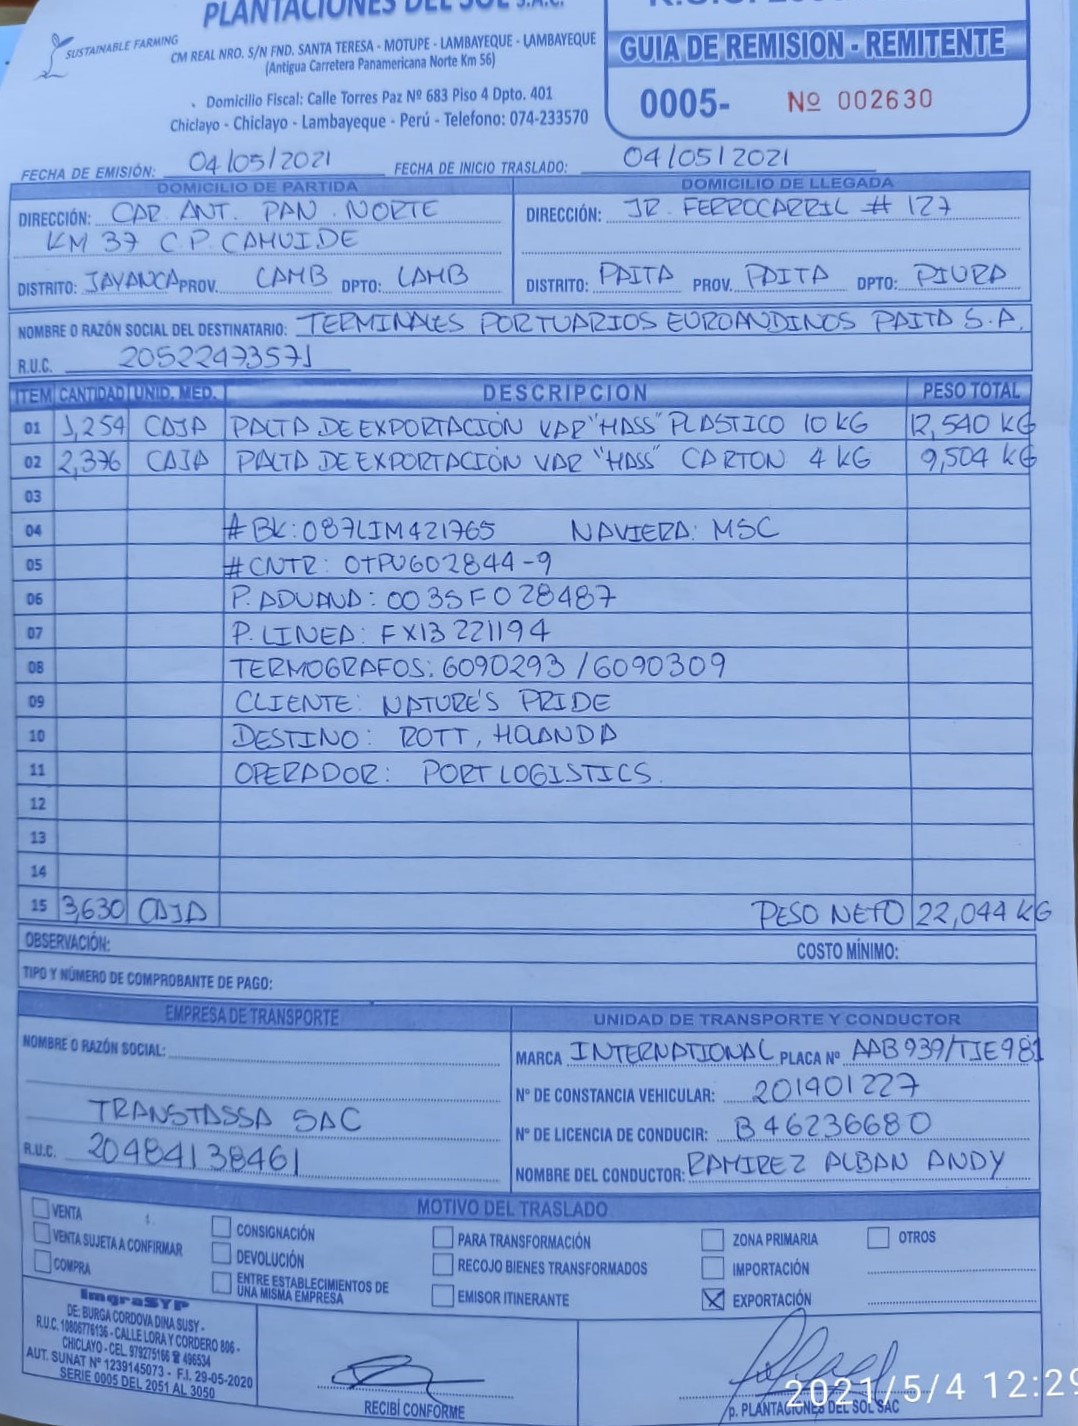 PLANTACIONES DEL SOL S.A.C.
SUSTAINABLE FARMING
CM REAL NRO. S/N FND. SANTA TERESA - MOTUPE - LAMBAYEQUE - LAMBAYEQUE
(Antigua Carretera Panamericana Norte Km 56)
Domicilio Fiscal: Calle Torres Paz Nº 683 Piso 4 Dpto. 401
Chiclayo - Chiclayo - Lambayeque - Perú - Telefono: 074-233570
GUIA DE REMISION - REMITENTE
0005- Nº 002630
FECHA DE EMISIÓN: 04/05/2021 FECHA DE INICIO TRASLADO: 04/05/2021
DOMICILIO DE PARTIDA DOMICILIO DE LLEGADA
DIRECCIÓN: CAR. ANT. PAN. NORTE DIRECCIÓN: JR. FERROCARRIL # 127
KM 37 C.P. CAHUIDE
DISTRITO: JAYANCA PROV. LAMB DPTO: LAMB DISTRITO: PAITA PROV. PAITA DPTO: PIURA
NOMBRE O RAZÓN SOCIAL DEL DESTINATARIO: TERMINALES PORTUARIOS EUROANDINOS PAITA S.A.
R.U.C. 20522473571
ITEM CANTIDAD UNID. MED. DESCRIPCION PESO TOTAL
01 1,254 CAJA PALTA DE EXPORTACIÓN VAR "HASS" PLASTICO 10 KG 12,540 KG
02 2,376 CAJA PALTA DE EXPORTACIÓN VAR "HASS" CARTON 4 KG 9,504 KG
03
04 # BK: 087LIM421765 NAVIERA: MSC
05 # CNTR: OTPU602844-9
06 P. ADUANA: 0035F028487
07 P. LINEA: FX13221194
08 TERMOGRAFOS: 6090293 / 6090309
09 CLIENTE: NATURE'S PRIDE
10 DESTINO: ROTT, HOLANDA
11 OPERADOR: PORT LOGISTICS.
12
13
14
15 3,630 CAJA PESO NETO 22,044 KG
OBSERVACIÓN: COSTO MÍNIMO:
TIPO Y NÚMERO DE COMPROBANTE DE PAGO:
EMPRESA DE TRANSPORTE UNIDAD DE TRANSPORTE Y CONDUCTOR
NOMBRE O RAZÓN SOCIAL: MARCA INTERNATIONAL PLACA Nº AAB939/TJE981
Nº DE CONSTANCIA VEHICULAR: 201901227
TRANSTASSA SAC Nº DE LICENCIA DE CONDUCIR: B46236680
R.U.C. 20484138461 NOMBRE DEL CONDUCTOR: RAMIREZ ALBAN ANDY
MOTIVO DEL TRASLADO
VENTA CONSIGNACIÓN PARA TRANSFORMACIÓN ZONA PRIMARIA OTROS
VENTA SUJETA A CONFIRMAR DEVOLUCIÓN RECOJO BIENES TRANSFORMADOS IMPORTACIÓN
COMPRA ENTRE ESTABLECIMIENTOS DE UNA MISMA EMPRESA EMISOR ITINERANTE EXPORTACIÓN
ImgraSYP
DE: BURGA CORDOVA DINA SUSY -
R.U.C. 10806776136 - CALLE LORA Y CORDERO 806 -
CHICLAYO - CEL. 979275166 ☎ 496534
AUT. SUNAT Nº 1239145073 - F.I. 29-05-2020
SERIE 0005 DEL 2051 AL 3050
RECIBÍ CONFORME
p. PLANTACIONES DEL SOL SAC
2021/5/4 12:29